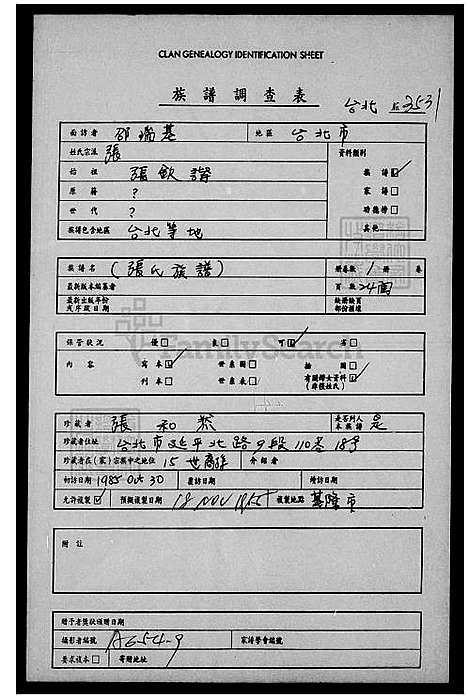 CLAN GENEALOGY IDENTIFICATION SHEET
族譜調查表
台北 2531
面訪者 邵瑞基 地區 台北市
姓氏宗派 張 資料類別
始祖 張欽 族譜☑
原籍 ? 家譜□
世代 ? 功德榜□
族譜包含地區 台北等地 其他
族譜名 (張氏族譜) 冊卷數 1 冊 卷
最新版本編纂者 頁數 24面
最新出版年份 缺冊缺頁
或序跋日期 部份描述
保管狀況 優□ 良□ 可☑ 劣□
內容 寫本☑ 世系圖□ 插圖□
刊本□ 世系表□ 有關婦女資料☑
(非張姓氏)
珍藏者 張和 是否列入本族譜 是
珍藏者住址 台北市延平北路9段110巷18号
珍藏者在(家)宗族中之地位 15世裔孫 介紹者
初訪日期 1985 Oct 30 覆訪日期 續訪日期
允許複製☑ 預擬複製日期 18 NOV 1985 複製地點 基隆市
附註
贈予者獎狀頒贈日期
攝影者編號 A654-9 家譜學會編號
要求復本□ 寄贈地址
FamilySearch